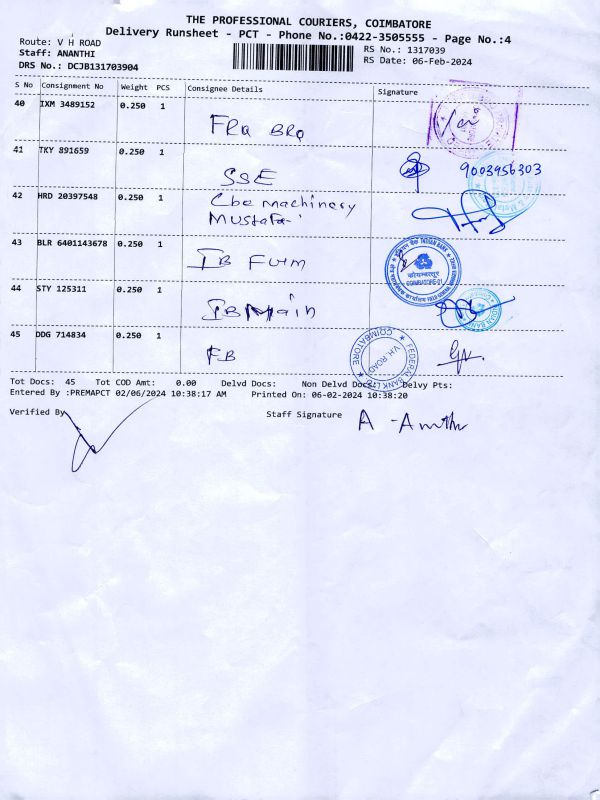 THE PROFESSIONAL COURIERS, COIMBATORE
Delivery Runsheet - PCT - Phone No.:0422-3505555 - Page No.:4
Route: V H ROAD
RS No.: 1317039
Staff: ANANTHI
RS Date: 06-Feb-2024
DRS No.: DCJB131703904
S No Consignment No Weight PCS Consignee Details Signature
40 IXM 3489152 0.250 1
FRQ BRO
41 TKY 891659 0.250 1
9003956303
SSE
42 HRD 20397548 0.250 1 Cbe Machinery
Mustafa
43 BLR 6401143678 0.250 1
INDIAN BANK
कोयम्बत्तूर
COIMBATORE-01
IB Furm
44 STY 125311 0.250 1
IB Main
45 DDG 714834 0.250 1
FB
COIMBATORE
V.H. ROAD
FEDERAL BANK LTD
Tot Docs: 45 Tot COD Amt: 0.00 Delvd Docs: Non Delvd Docs: Delvy Pts:
Entered By :PREMAPCT 02/06/2024 10:38:17 AM Printed On: 06-02-2024 10:38:20
Verified By
Staff Signature